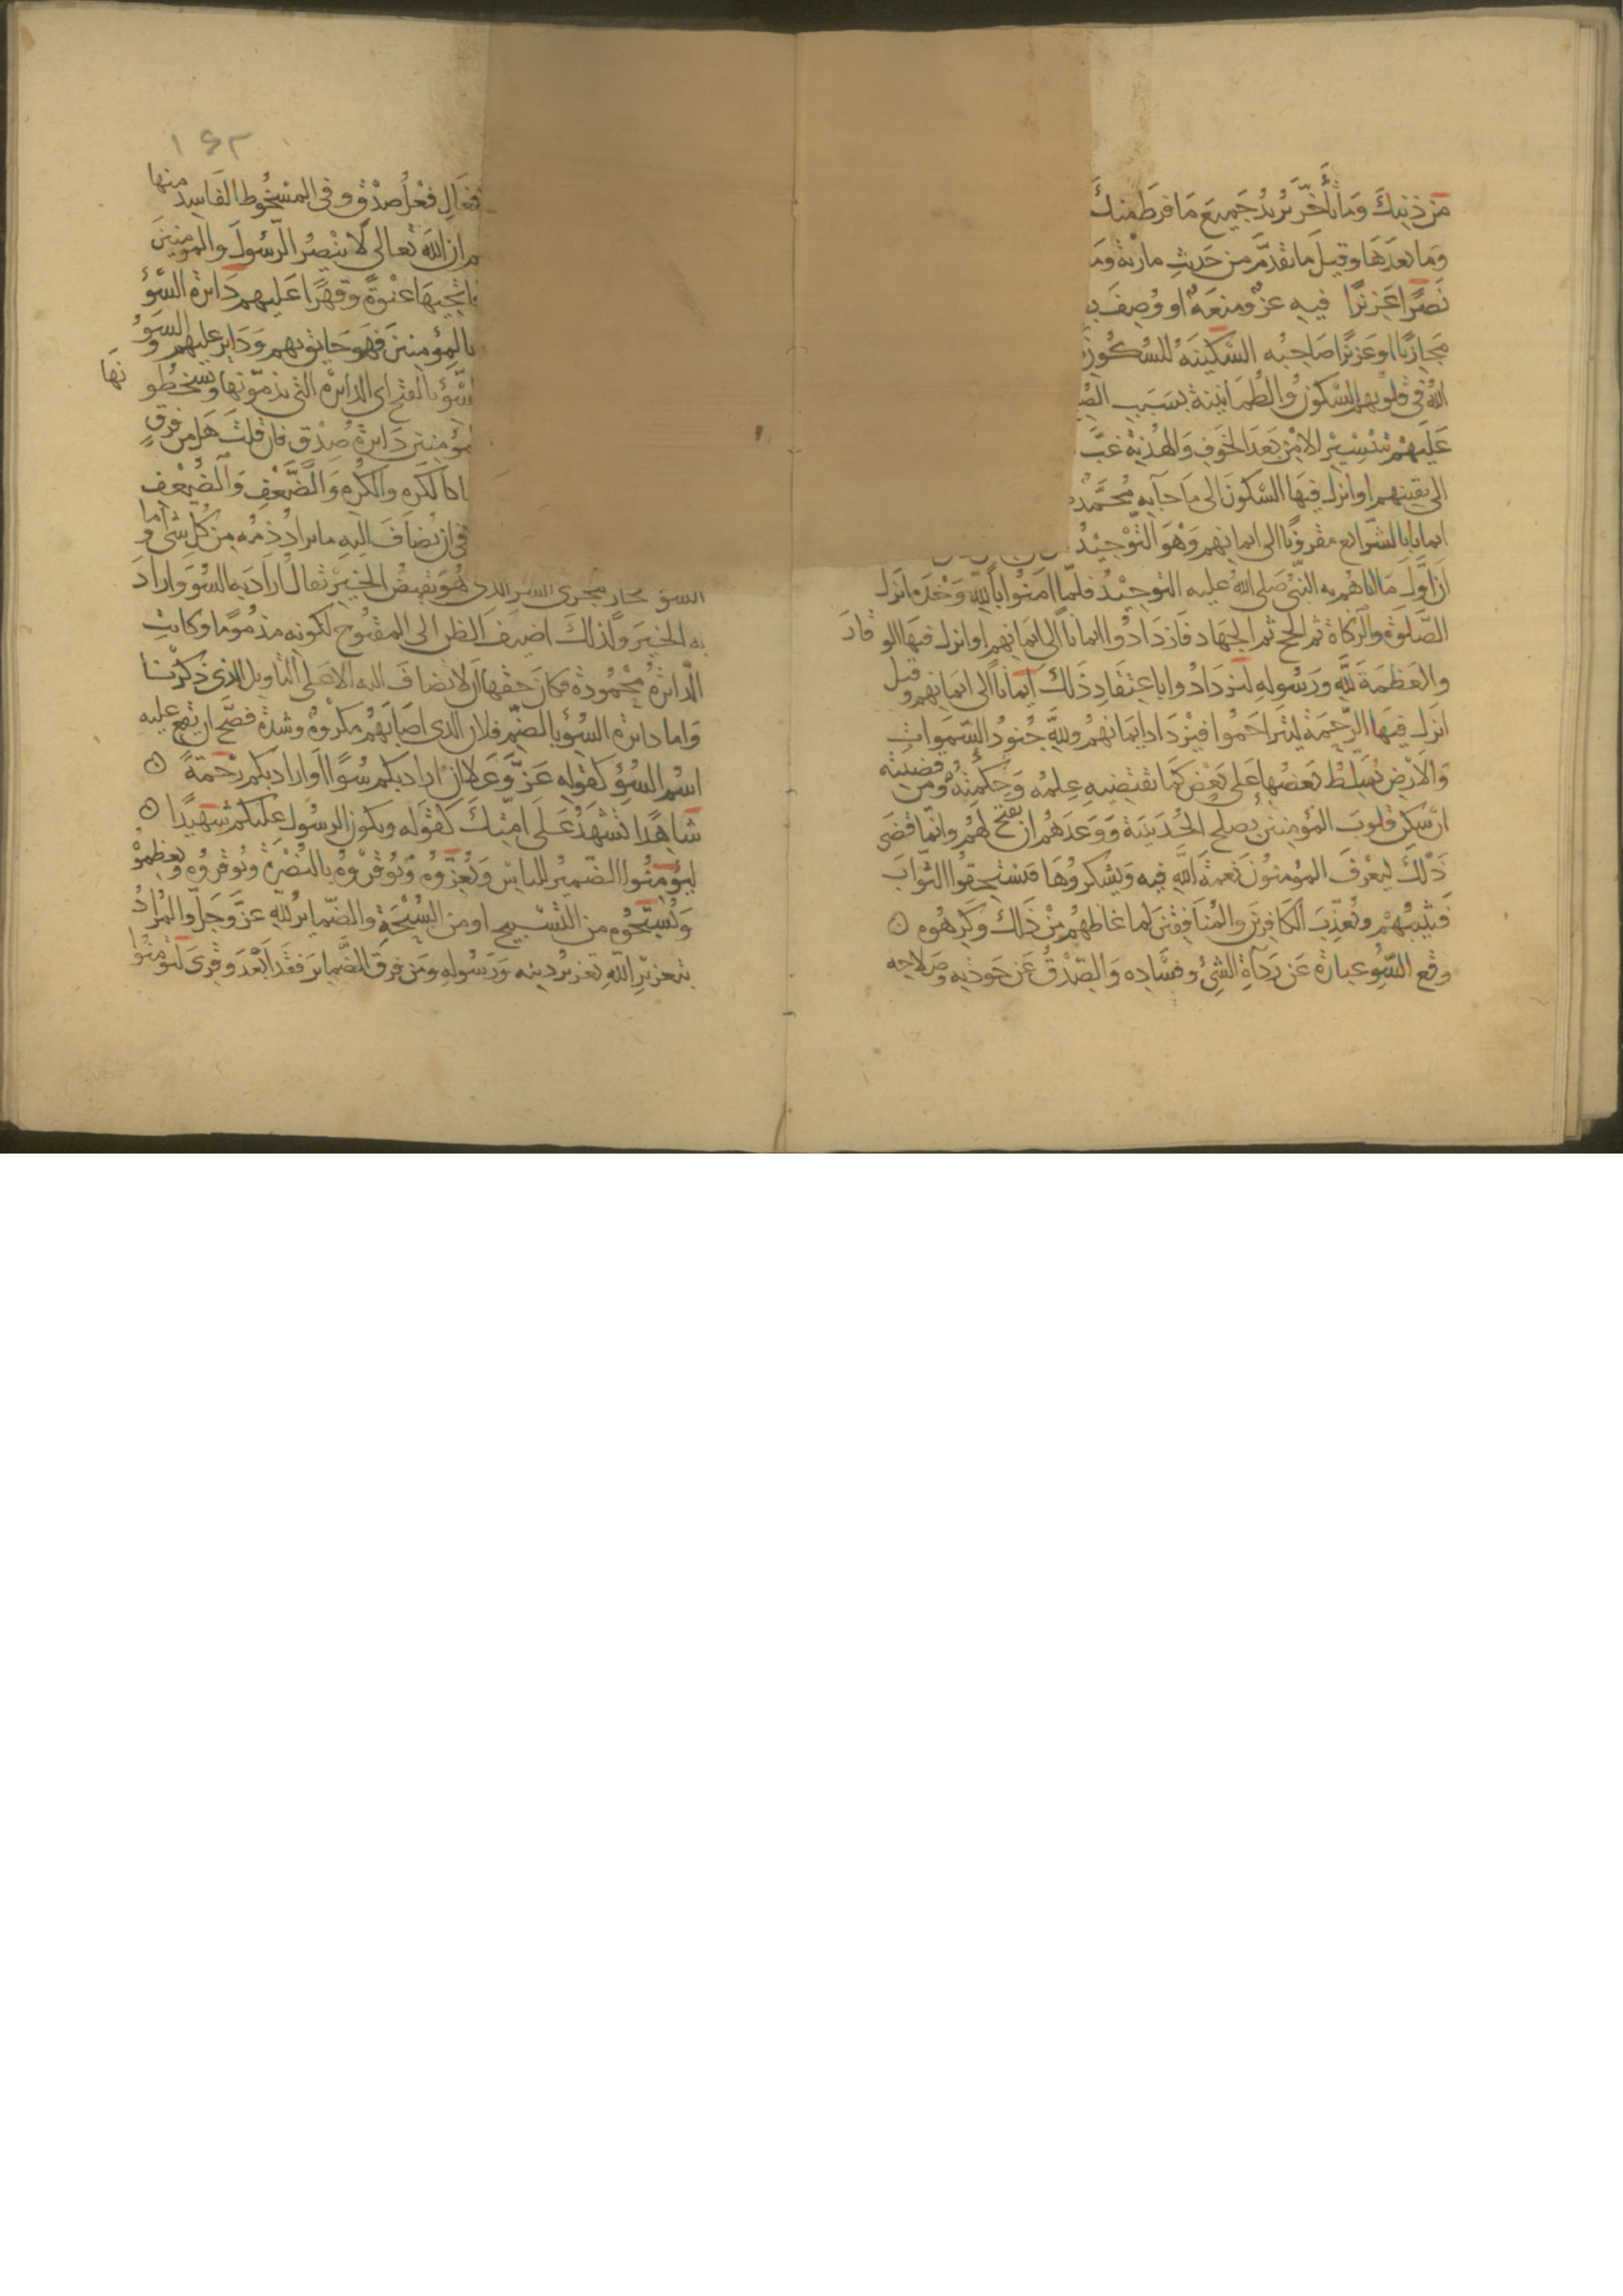 من ذنبك وما تأخر يريد جميع ما فرط منك
وما بعدها وقيل ما تقدم من حديث مارية وما
نصرا عزيزا فيه عز ومنعة او وصف
مجازيا او عزيزا صاحبه السكينة للسكون
الله في قلوبهم السكون والطمانينة بسبب
عليهم بتيسير الامن بعد الخوف والهدنة غب
الى يقينهم او انزل فيها السكون الى ما جآ به محمد
ايمانا بالشرائع مقرونا الى ايمانهم وهو التوحيد
ان اول ما اتاهم به النبي صلى الله عليه التوحيد فلما امنوا بالله وحده انزل
الصلوة والزكاة ثم الحج ثم الجهاد فازدادوا ايمانا الى ايمانهم او انزل فيها الوقار
والعظمة لله ورسوله ليزدادوا باعتقاد ذلك ايمانا الى ايمانهم وقيل
انزل فيها الرحمة ليتراحموا فيزداد ايمانهم ولله جنود السموات
والارض يسلط بعضها على بعض كما يقتضيه علمه وحكمته ومن قضيته
ان سكن قلوب المؤمنين بصلح الحديبية ووعدهم ان يفتح لهم وانما قضى
ذلك ليعرف المؤمنون نعمة الله فيه ويشكروها فيستحقوا الثواب
فيثيبهم ويعذب الكافرين والمنافقين لما غاظهم من ذلك وكرهوه
وقع السوء عبارة عن ردآة الشئ وفساده والصدق عن جودته وصلاحه
١٤٣
فعال فعل صدق وفي المسخوط الفاسد منها
ان الله تعالى لا ينصر الرسول والمومنين
فاتحيها عنوة وقهرا عليهم دايرة السوء
بالمؤمنين فهو حايق بهم وداير عليهم والسوء
السوء بالفتح اى الدايرة التي يذمونها ويسخطونها
دايرة صدق فان قلت هل من فرق
كالكره والكره والضعف والضعف
في ان يضاف اليه ما يراد ذمه من كل شئ واما
السوء فجار مجرى الشر الذى هو نقيض الخير يقال اراد به السوء واراد
به الخير ولذلك اضيف الظن الى المفتوح لكونه مذموما وكانت
الدايرة محمودة فكان حقها ان لا تضاف اليه الا على التاويل الذى ذكرنا
واما دايرة السوء بالضم فلان الذى اصابهم مكروه وشدة فصح ان يقع عليه
اسم السوء كقوله عز وعلا ان اراد بكم سوءا او اراد بكم رحمة
شاهدا تشهد على امتك كقوله ويكون الرسول عليكم شهيدا
ليؤمنوا الضمير للناس ويعزروه ويوقروه بالنصرة ويوقروه ويعظموه
ويسبحوه من التسبيح او من السبحة والضماير لله عز وجل والمراد
بتعزيز الله تعزيز دينه ورسوله ومن فرق الضماير فقد ابعد وقرى لتومنوا